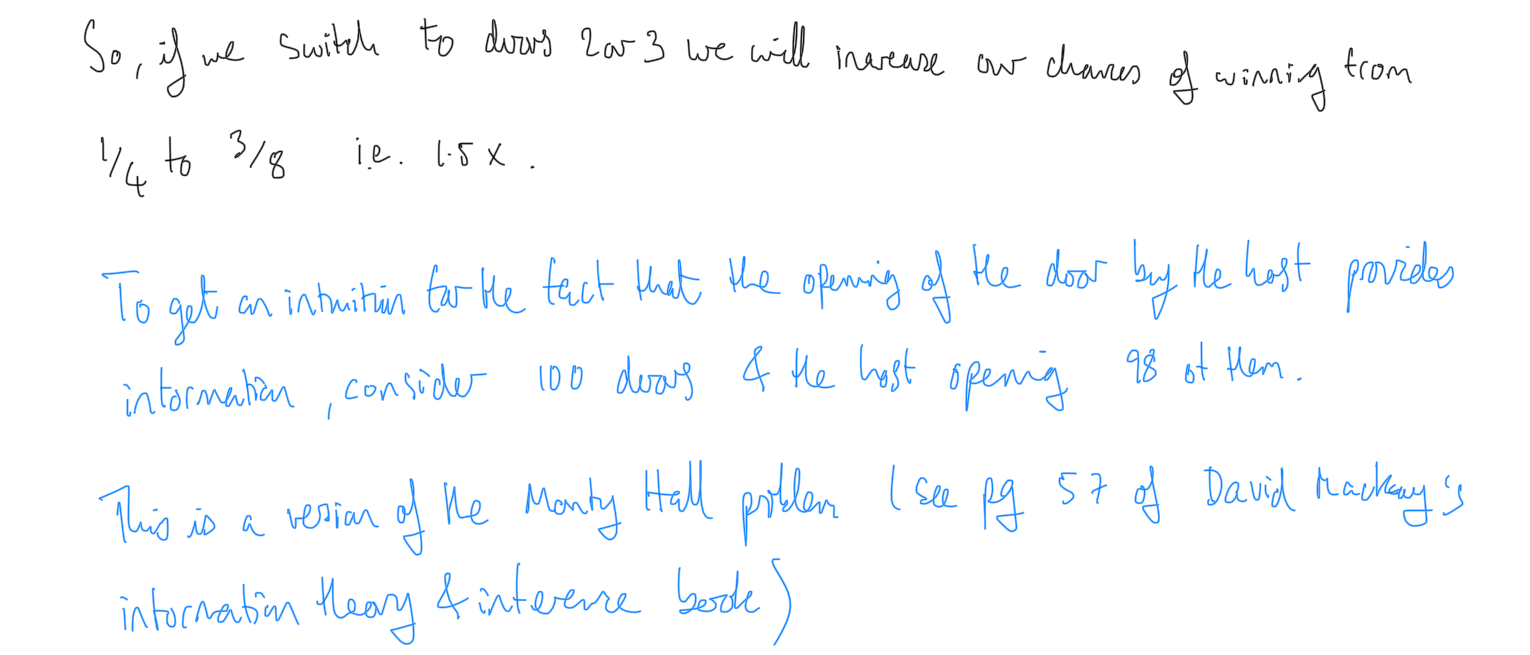 So, if we switch to doors 2 or 3 we will increase our chances of winning from
1/4 to 3/8 i.e. 1.5 x.
To get an intuition for the fact that the opening of the door by the host provides
information, consider 100 doors & the host opening 98 of them.
This is a version of the Monty Hall problem (see pg 57 of David Mackay's
information theory & inference book)